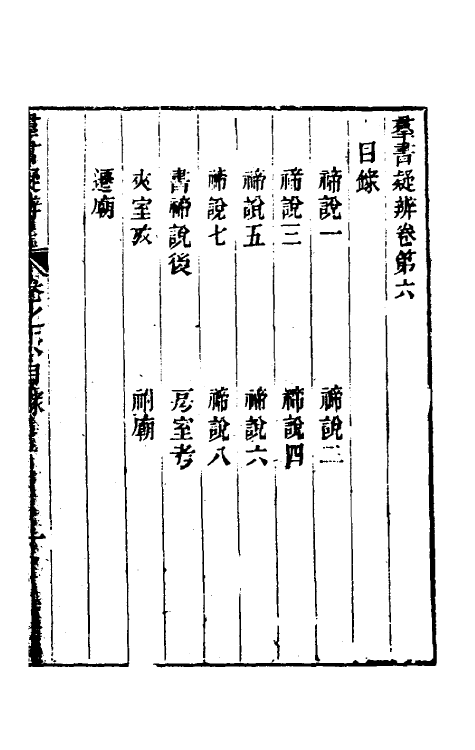 羣書疑辨卷第六
目錄
禘說一　禘說二
禘說三　禘說四
禘說五　禘說六
禘說七　禘說八
書禘說後　房室考
夾室攷　祔廟
遷廟
羣書疑辨
卷之六目錄